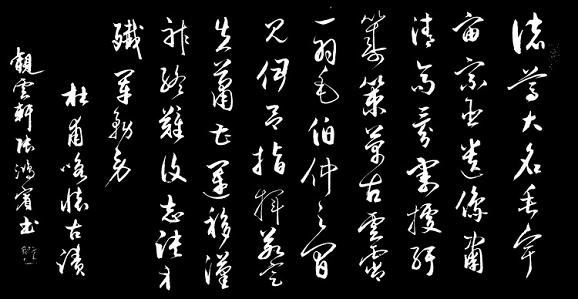 諸葛大名垂宇
宙宗臣遺像肅
清高三分割據紆
籌策萬古雲霄
一羽毛伯仲之間
見伊呂指揮若定
失蕭曹運移漢
祚終難復志決身
殲軍務勞
杜甫咏懷古蹟
觀雲軒張鴻賓書